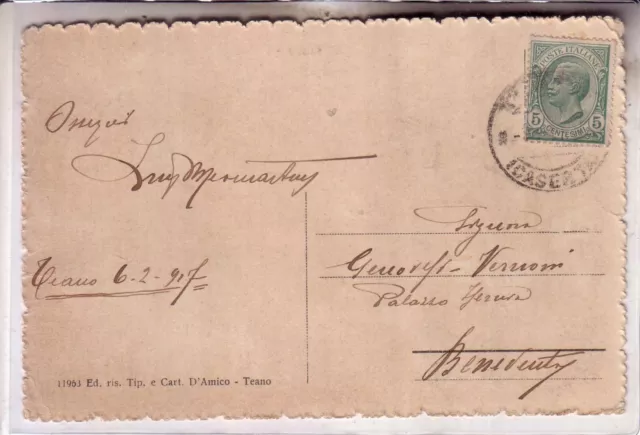 POSTE ITALIANE
5 5
CENTESIMI
(CASERTA)
Ossequi
Signora
Genovesi - Vernoni
Teano 6-2-917
Palazzo
Benevento
11963 Ed. ris. Tip. e Cart. D'Amico - Teano